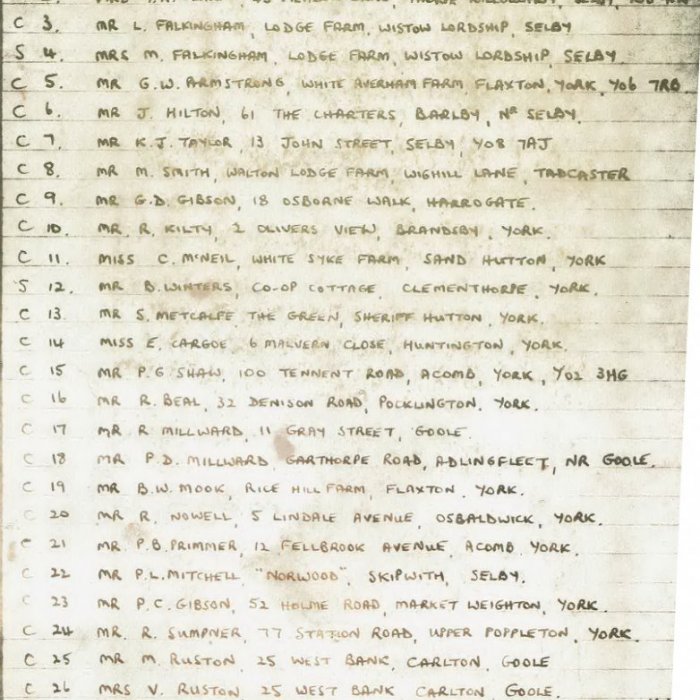 C 3. MR L. FALKINGHAM, LODGE FARM, WISTOW LORDSHIP, SELBY
S 4. MRS M. FALKINGHAM, LODGE FARM, WISTOW LORDSHIP, SELBY.
C 5. MR G.W. ARMSTRONG, WHITE AVERHAM FARM FLAXTON, YORK, YO6 7RB
C 6. MR J. HILTON, 61 THE CHARTERS, BARLBY, NR SELBY.
C 7. MR K.J. TAYLOR, 13 JOHN STREET, SELBY, YO8 7AJ
C 8. MR M. SMITH, WALTON LODGE FARM, WIGHILL LANE, TADCASTER
C 9. MR G.D. GIBSON, 18 OSBORNE WALK, HARROGATE.
C 10. MR. R. KILTY, 2 OLIVERS VIEW, BRANDSBY, YORK.
C 11. MISS C. McNEIL, WHITE SYKE FARM, SAND HUTTON, YORK
S 12. MR B. WINTERS, CO-OP COTTAGE, CLEMENTHORPE, YORK.
C 13. MR S. METCALFE THE GREEN, SHERIFF HUTTON, YORK.
C 14 MISS E. CARGOE 6 MALVERN CLOSE, HUNTINGTON, YORK.
C 15 MR P.G SHAW, 100 TENNENT ROAD, ACOMB, YORK, YO2 3HG
C 16 MR R. BEAL, 32 DENISON ROAD, POCKLINGTON. YORK.
C 17 MR R MILLWARD, 11 GRAY STREET, GOOLE.
C 18 MR P.D. MILLWARD, GARTHORPE ROAD, ADLINGFLEET, NR GOOLE.
C 19 MR B.W. MOOK, RICE HILL FARM, FLAXTON. YORK.
C 20 MR R. NOWELL, 5 LINDALE AVENUE, OSBALDWICK, YORK.
C 21 MR. P.B. PRIMMER, 12 FELLBROOK AVENUE, ACOMB, YORK.
C 22 MR P.L. MITCHELL "NORWOOD", SKIPWITH, SELBY.
C 23 MR P.C. GIBSON, 52 HOLME ROAD, MARKET WEIGHTON, YORK.
C 24 MR. R. SUMPNER, 77 STATION ROAD, UPPER POPPLETON, YORK.
C 25 MR M. RUSTON, 25 WEST BANK, CARLTON, GOOLE
C 26 MRS V. RUSTON, 25 WEST BANK CARLTON, GOOLE.